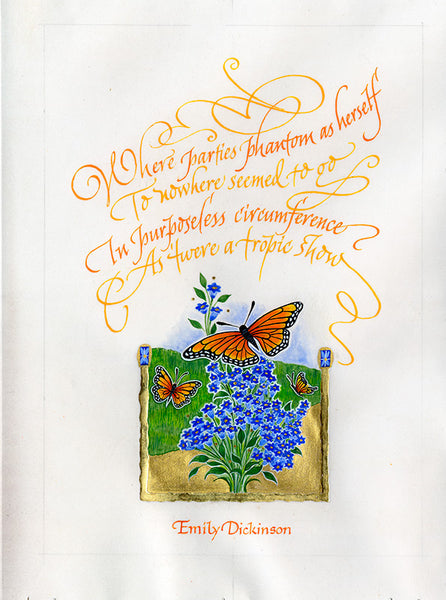 Where parties phantom as herself
To nowhere seemed to go
In purposeless circumference
As 'twere a tropic show
Emily Dickinson